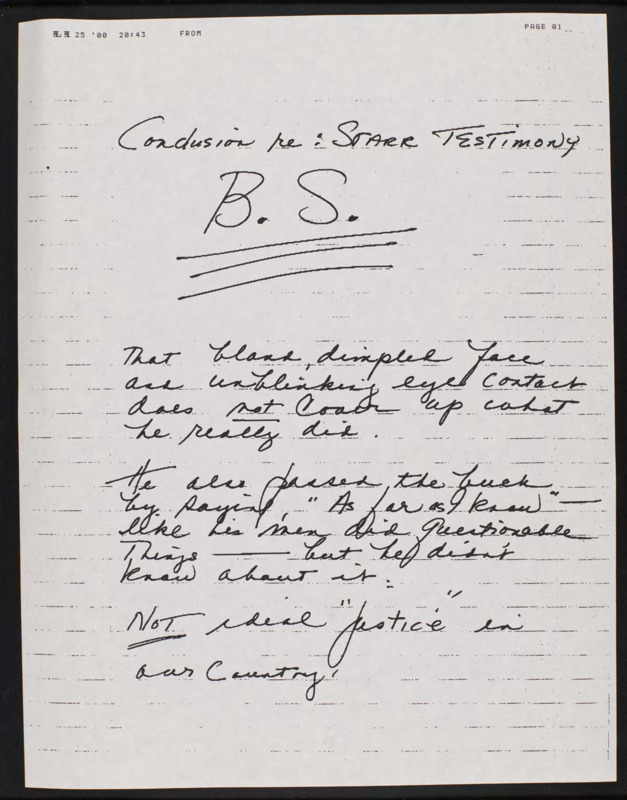 25 '00 20:43 FROM PAGE 01
Conclusion re: STARR TESTIMONY
B. S.
That bland, dimpled face
and unblinking eye contact
does not cover up what
he really did.
He also passed the buck
by saying, "As far as I know" —
like his men did questionable
things — but he didn't
know about it.
NOT ideal "justice" in
our Country!